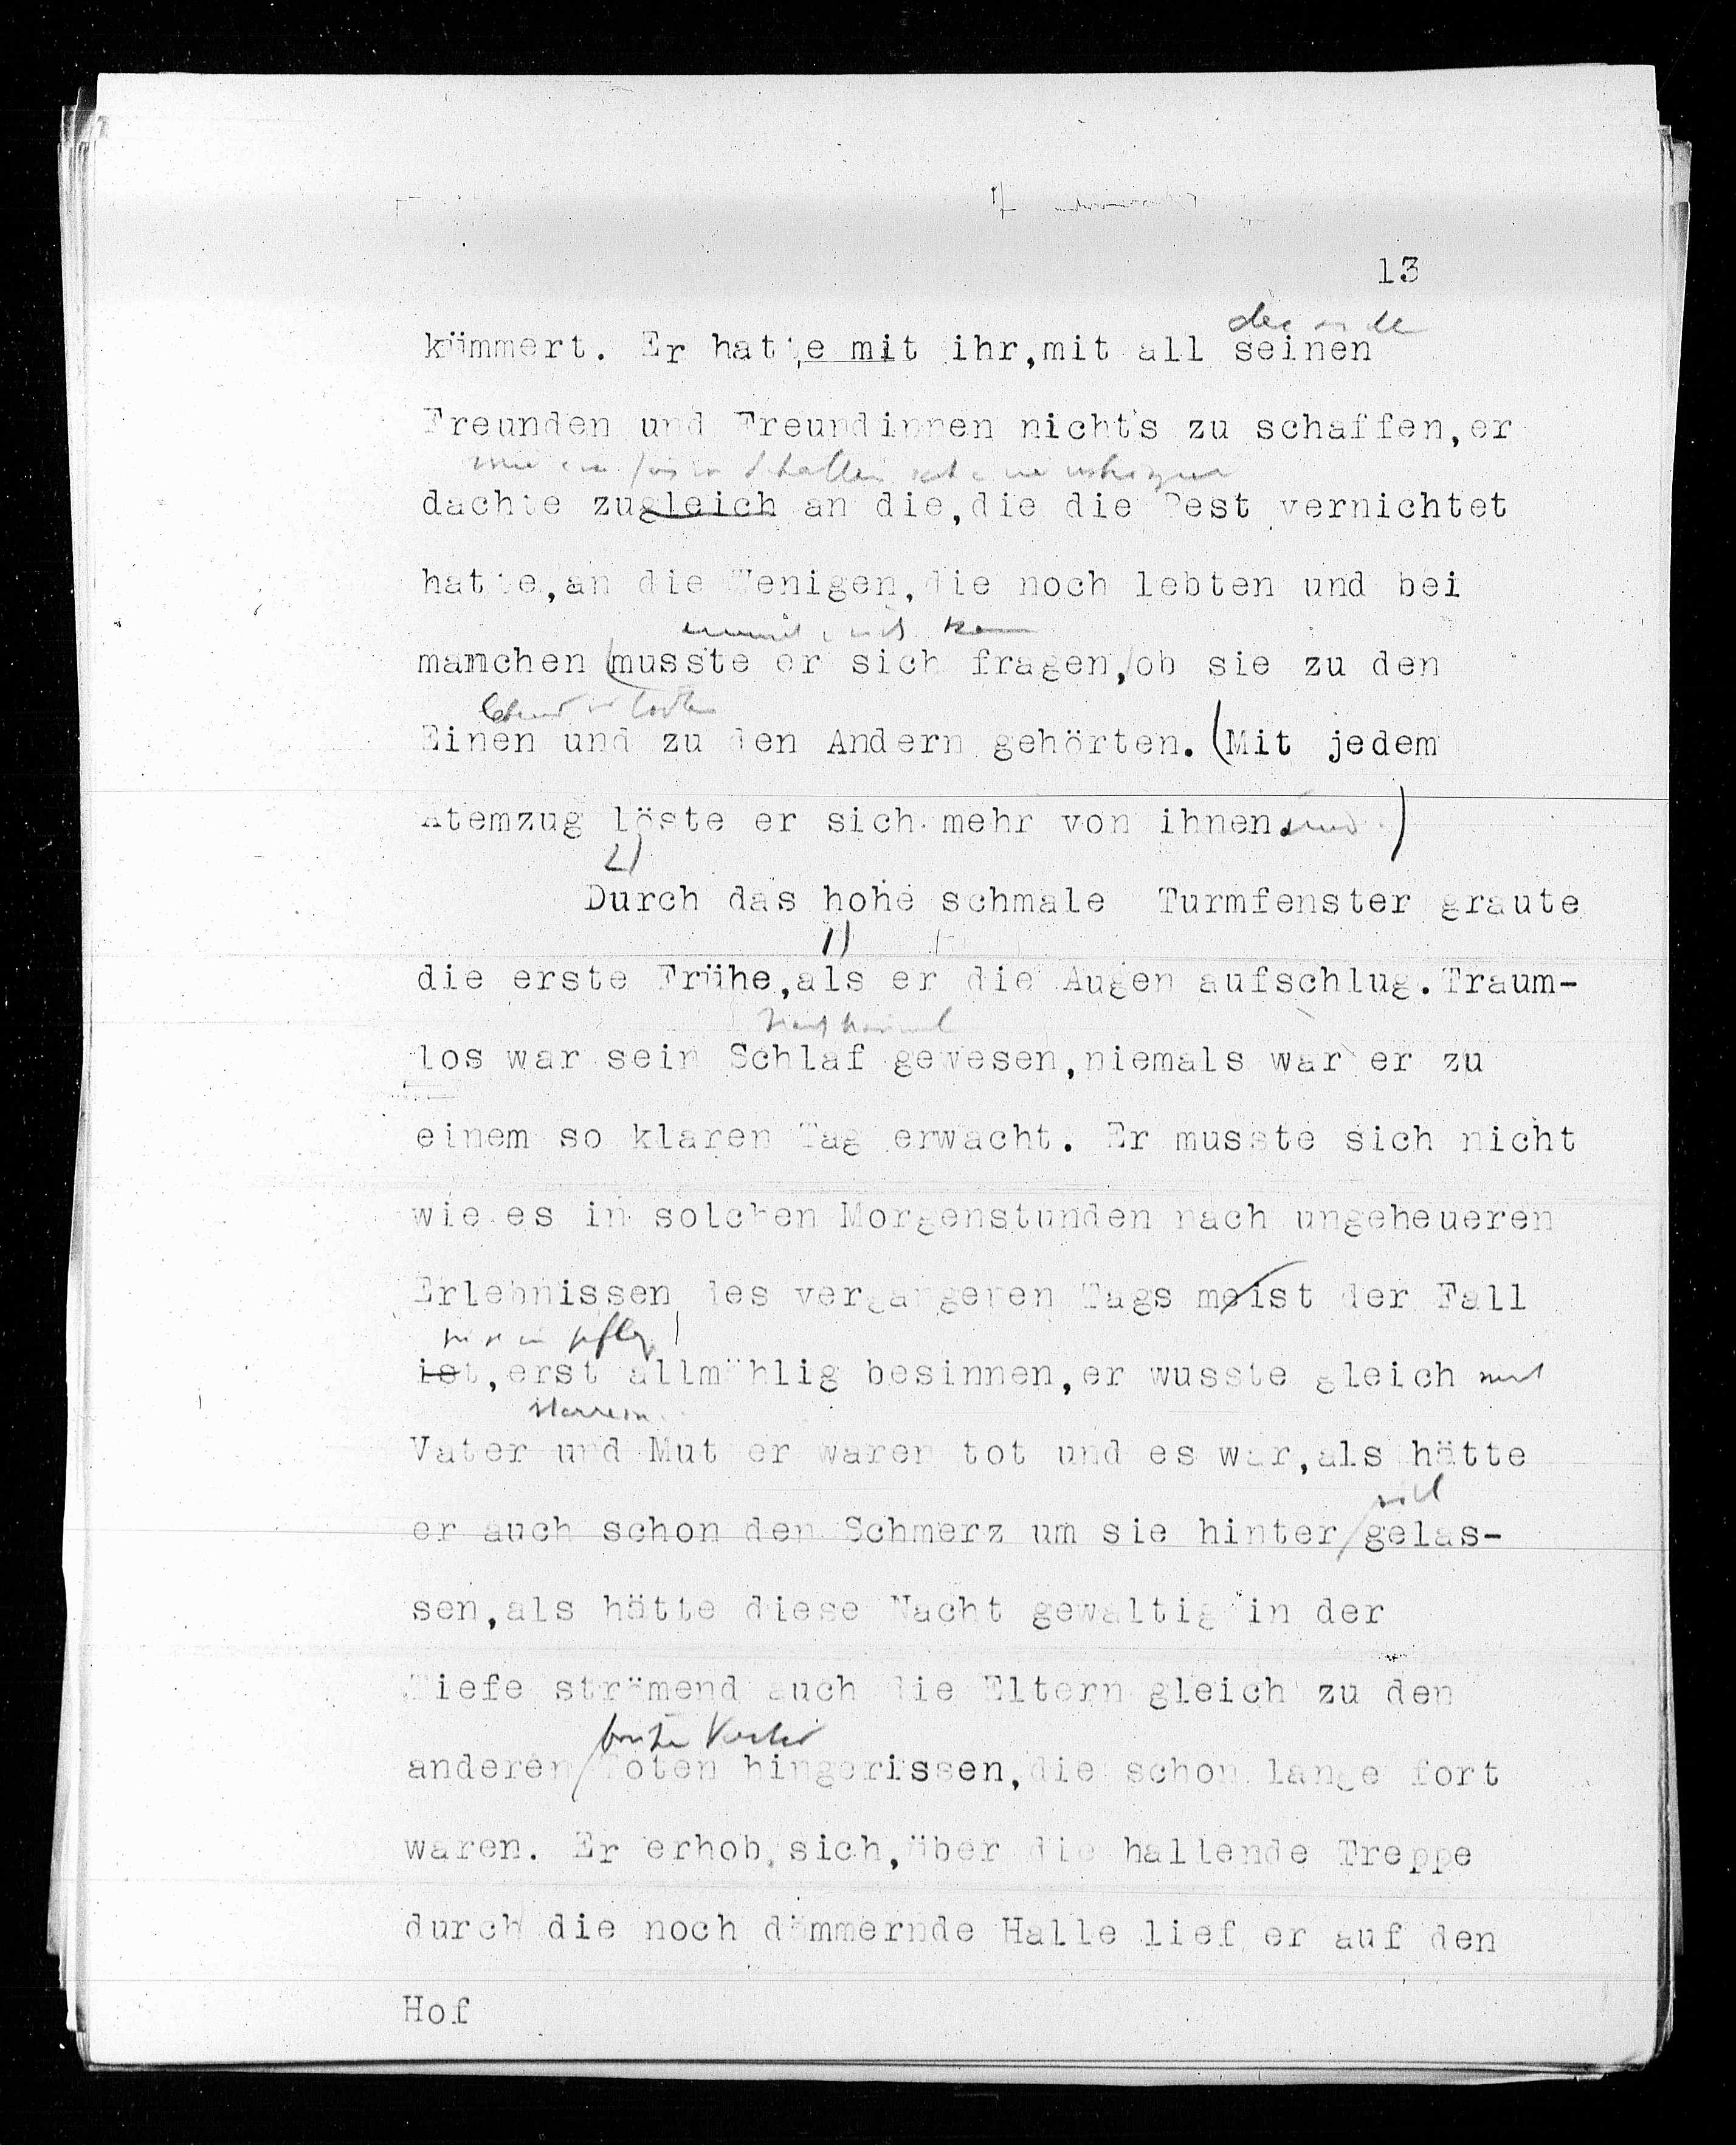 13
kümmert. Er hatte mit ihr,mit all seinen
Freunden und Freundinnen nichts zu schaffen,er
dachte zugleich an die,die die Pest vernichtet
hatte,an die Wenigen,die noch lebten und bei
mamchen (musste er sich fragen,/ob sie zu den
Einen und zu den Andern gehörten. (Mit jedem
Atemzug löste er sich mehr von ihnen. )
2)
Durch das hohe schmale Turmfenster graute
1)
die erste Frühe,als er die Augen aufschlug.Traum-
los war sein Schlaf gewesen,niemals war er zu
einem so klaren Tag erwacht. Er musste sich nicht
wie es in solchen Morgenstunden nach ungeheueren
Erlebnissen des vergangenen Tags meist der Fall
ist,erst allmählig besinnen,er wusste gleich
Vater und Mutter waren tot und es war,als hätte
er auch schon den Schmerz um sie hinter/gelas-
sen,als hätte diese Nacht gewaltig in der
Tiefe strömend auch die Eltern gleich zu den
anderen/Toten hingerissen,die schon lange fort
waren. Er erhob sich,über die hallende Treppe
durch die noch dämmernde Halle lief er auf den
Hof